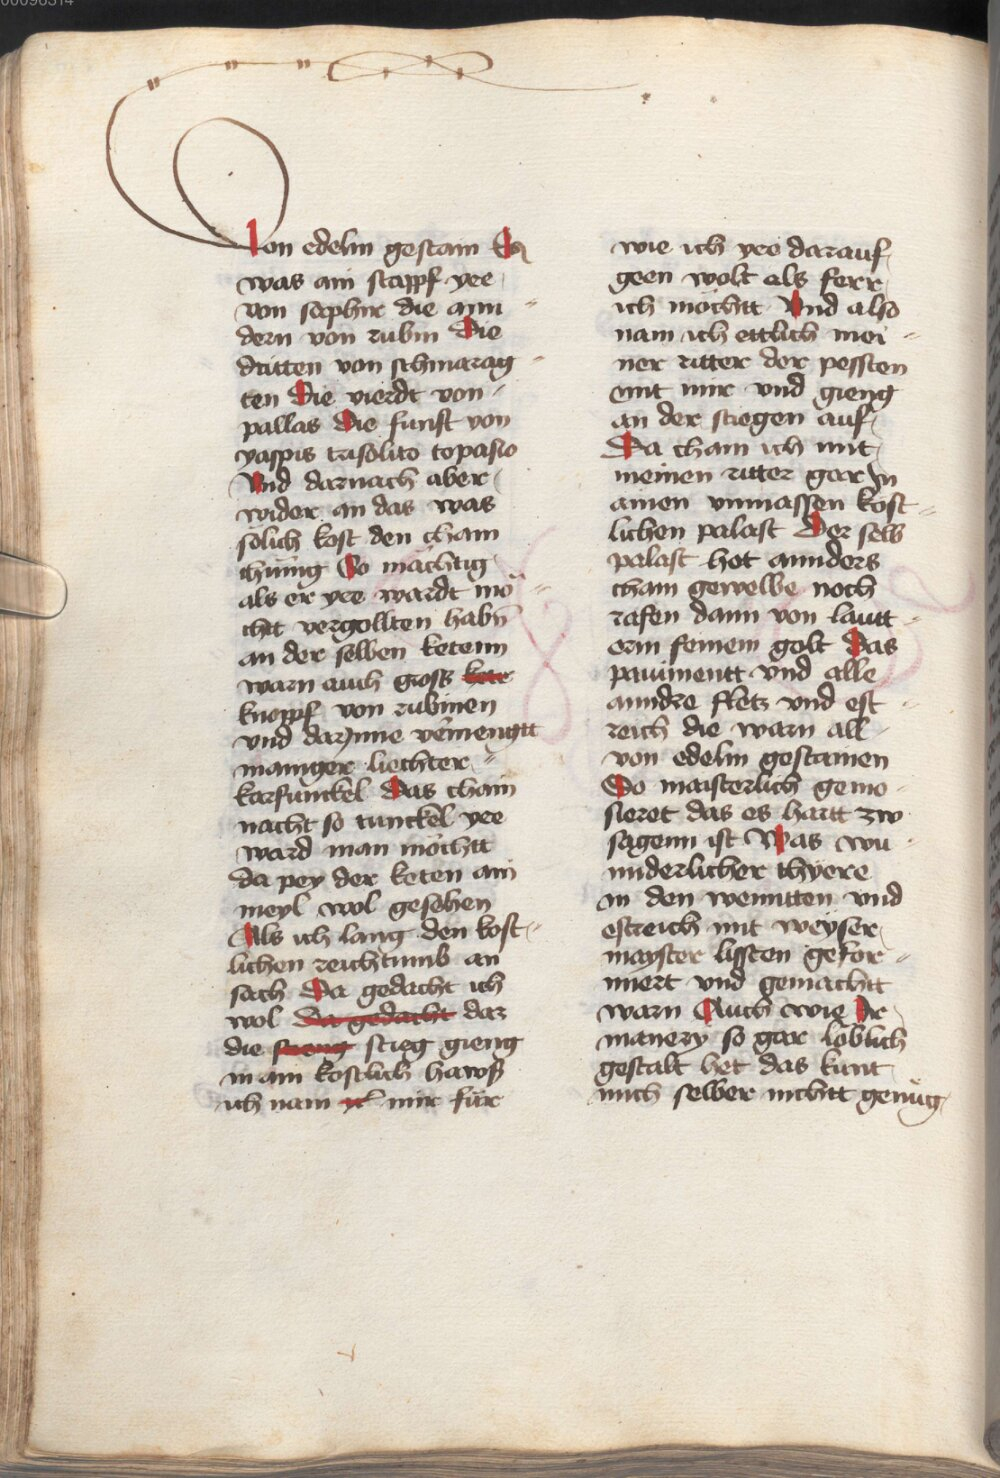 00096314
Von edelm gestain Es
was ain stappf yee
von saphir die ann=
dern von rubin Die
dritten von schmarag=
ten Die vierdt von
pallas Die funft von
yaspis crisolito topasio
Vnd darnach aber
wider an das was
solich kost den cham
chunig So mächtig
als er yee wardt mö=
cht vergollten habn
an der selben ketenn
warn auch gross kete
knöpf von rubinen
vnd darInne vermengtt
maniger liechter=
karfunckel Das cham
nacht so tunckel yee
ward man möchtt
da pey der keten ain
meyl wol gesehen
Als ich lang den kost=
lichen reichtumb an
sach Da gedacht ich
wol Da gedacht das
die steng stieg gieng
in ain kostlich hawß
ich nam mir für
wie ich yee darauf
geen wolt als ferr
ich möchtt Vnd also
nam ich ettlich mei=
ner ritter der pessten
mit mir vnd gieng
an der stiegen auf
Da cham ich mit
meinen ritter gar In
ainen vnmassen kost=
lichen palast Der selb
palast het annders
cham gewelbe noch
rafen dann von lautt=
erm feinem golt Das
pauimentt vnd alle
anndre fletz vnd est=
reich die warn all
von edelm gestainen
So maisterlich gemo=
sieret das es hartt zw
sagenn ist Was wu=
nnderlicher thyere
in den wenntten vnd
estreich mit weyser
mayster lissten gefor=
miert vnd gemachtt
warn Auch wie Ir
manery so gar loblich
gestalt het das kunt
mich selber nichtt genüg